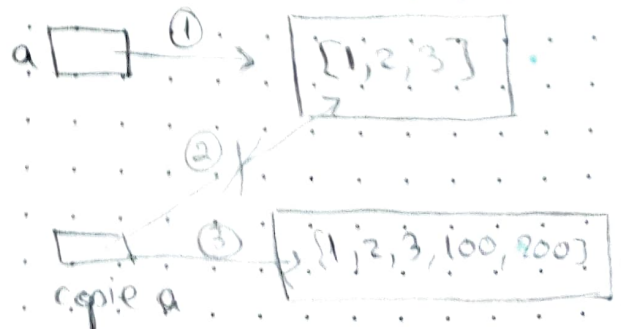 ① 
a [1,2,3]
②
③
[1,2,3,100,200]
copie a